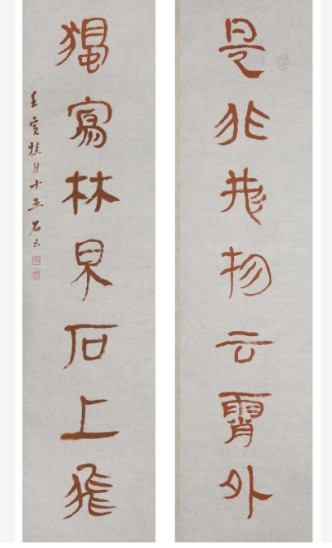 是非物云霄外
獨寫林泉石上飛
壬寅桂月十五石云